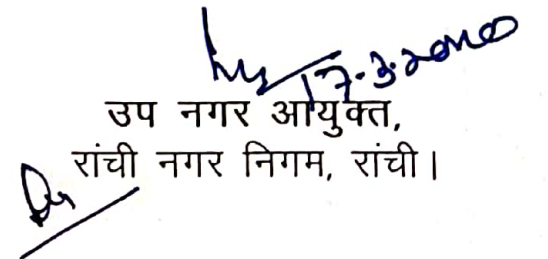 17-3-2020
उप नगर आयुक्त,
रांची नगर निगम, रांची।